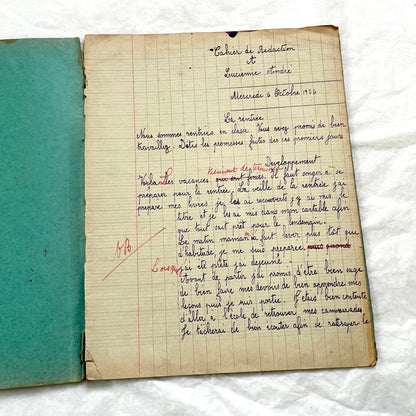 Cahier de Rédaction
A
Lucienne André
Mercredi 4 Octobre 1944
La rentrée
Nous sommes rentrés en classe. Vous avez promis de bien
travailler. Dites les promesses faites ces premiers jours
Développement
viennent de terminer
Voilà les vacances qui ont finies. Il faut songer à se
préparer pour la rentrée. La veille de la rentrée j'ai
préparé mes livres je les ai recouvert j'y ai mis le
titre et je les ai mis dans mon cartable afin
que tout soit prêt pour le lendemain.
Le matin maman a fait lever plus tôt que
d'habitude, je me suis préparée
Lorsque j'ai été prête j'ai déjeuné.
Avant de partir j'ai promis d'être bien sage
de bien faire mes devoirs de bien apprendre mes
leçons puis je suis partie. J'étais bien contente
d'aller à l'école de retrouver mes camarades
Je tâcherai de bien écouter afin de rattraper le